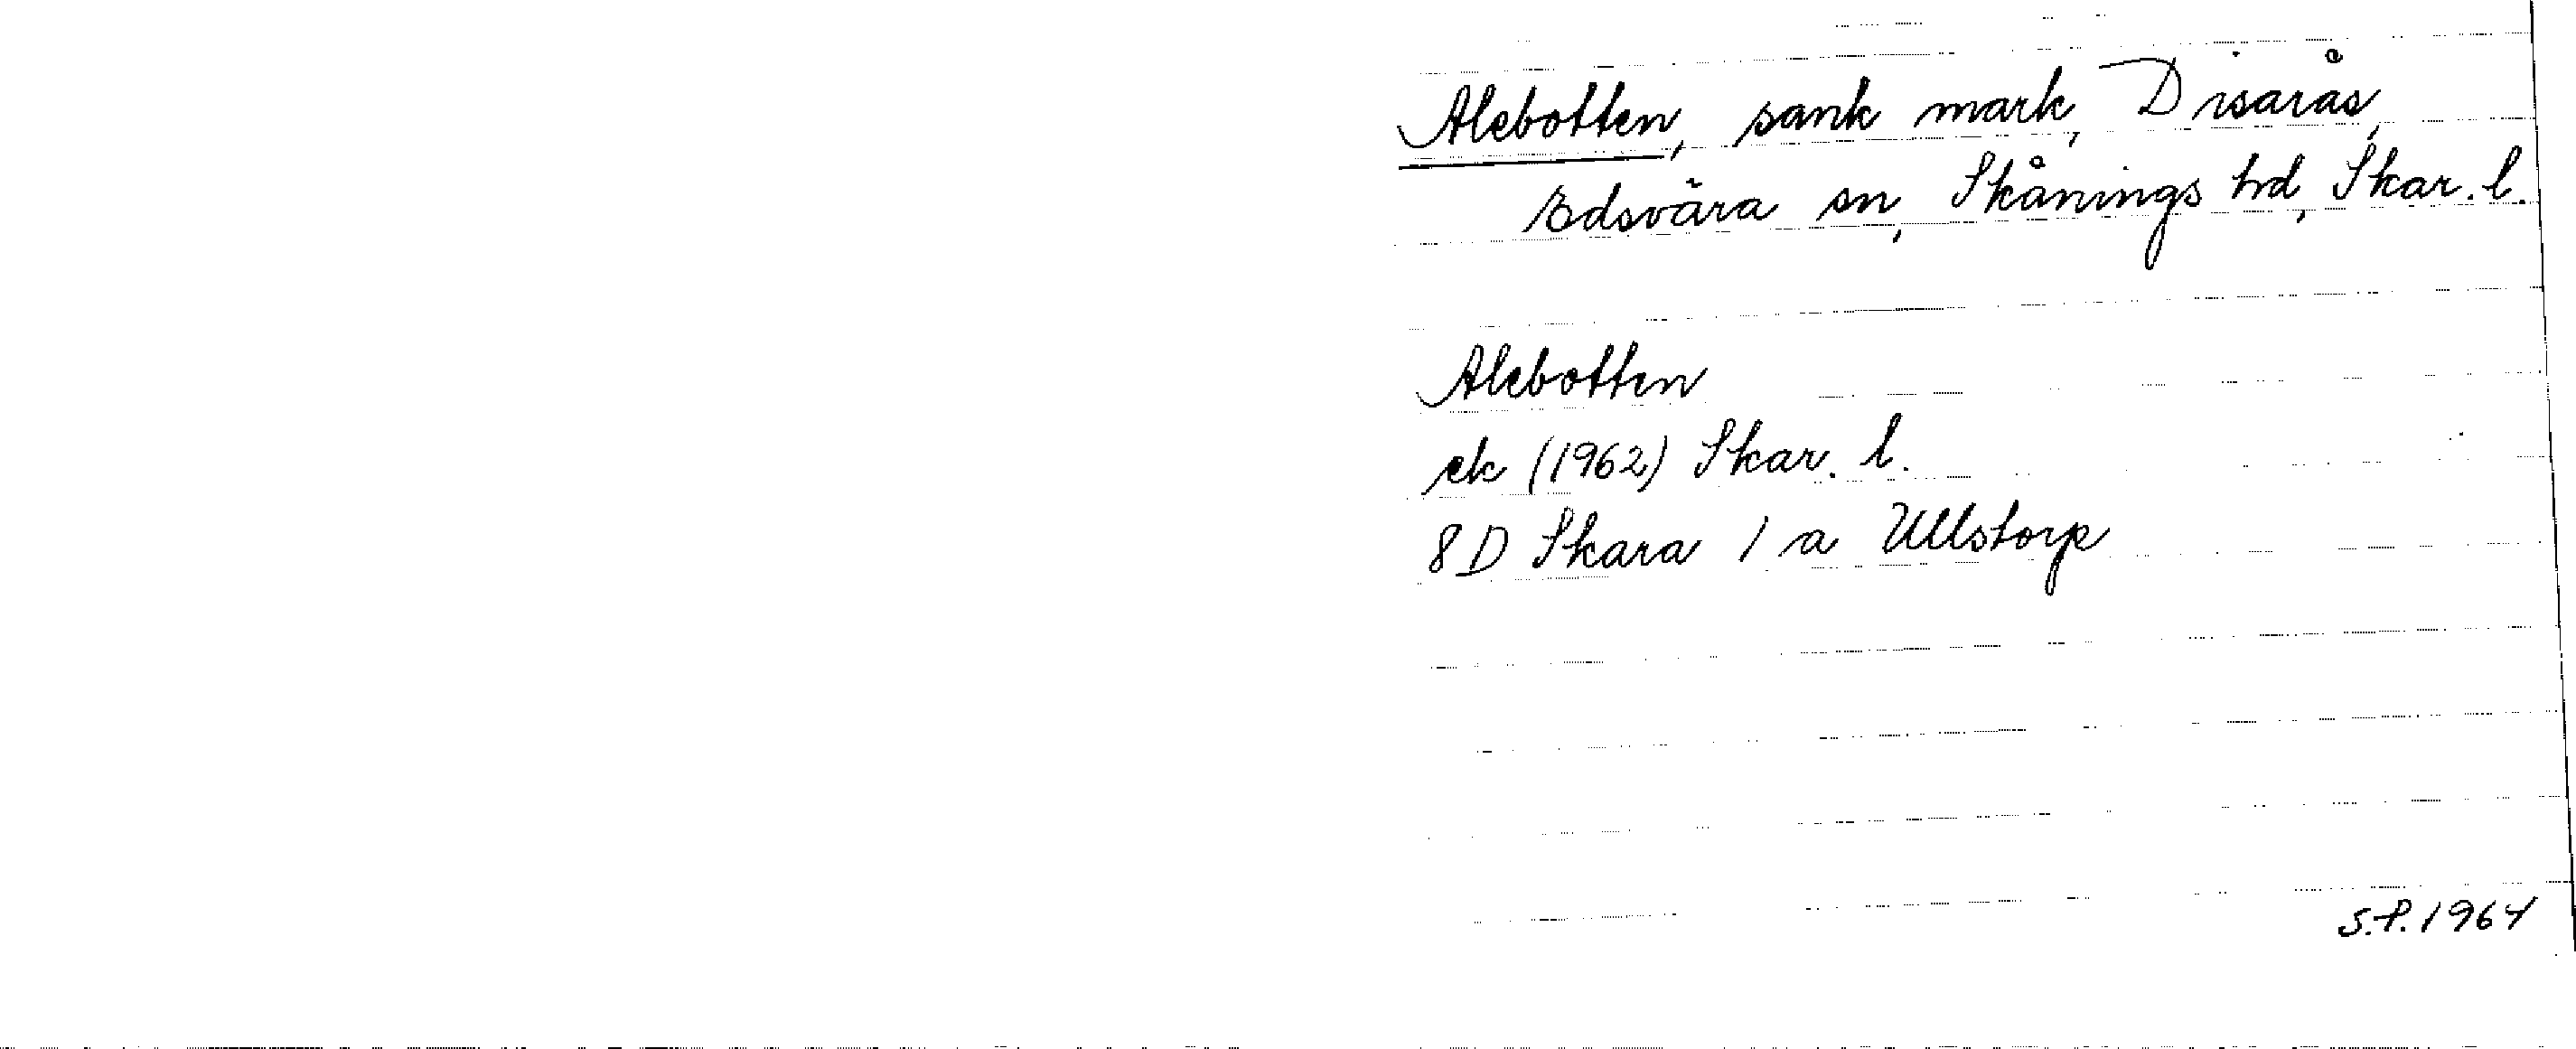 Alebotten, sank mark, Disarås,
Edsvära sn, Skånings hd, Skar. l.
Alebotten
ek (1962) Skar. l.
8D Skara 1 a Ullstorp
S.P. 1964